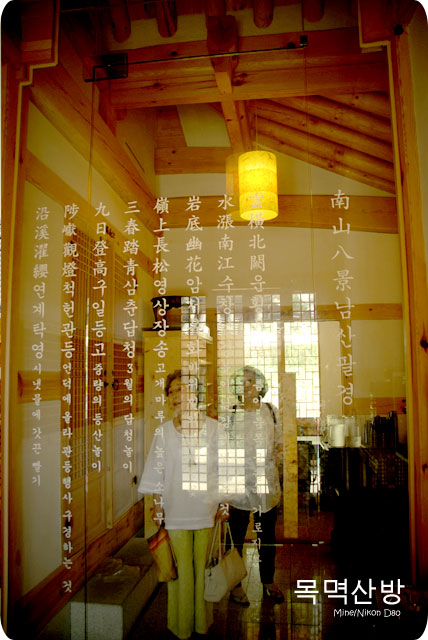 南山八景남산팔경
橫北闕운횡
水漲南江수창
岩底幽花암
嶺上長松영상장송 고개마루의 높은 소나무
三春踏青삼춘답청 3월의 답청놀이
九日登高구일등고 중량의 등산놀이
陟巘觀燈척헌관등 언덕에 올라 관등행사 구경하는 것
沿溪濯纓연계탁영 시냇물에 갓끈 빨기
목멱산방
Mine/Nikon D80